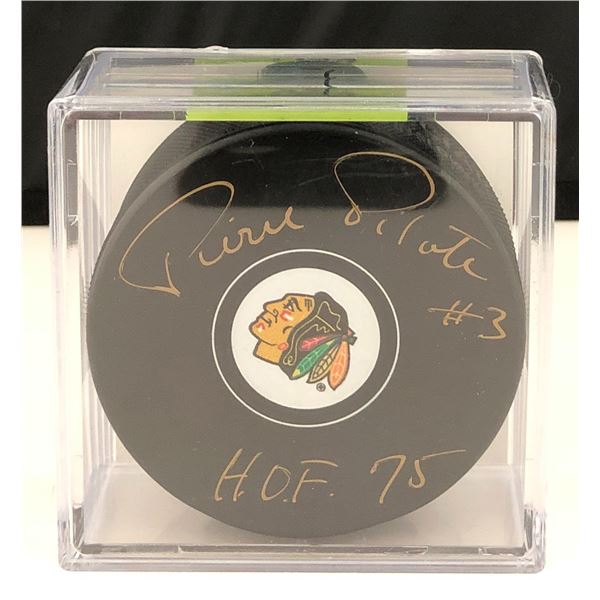 Pierre Pilote
#3
H.O.F. 75